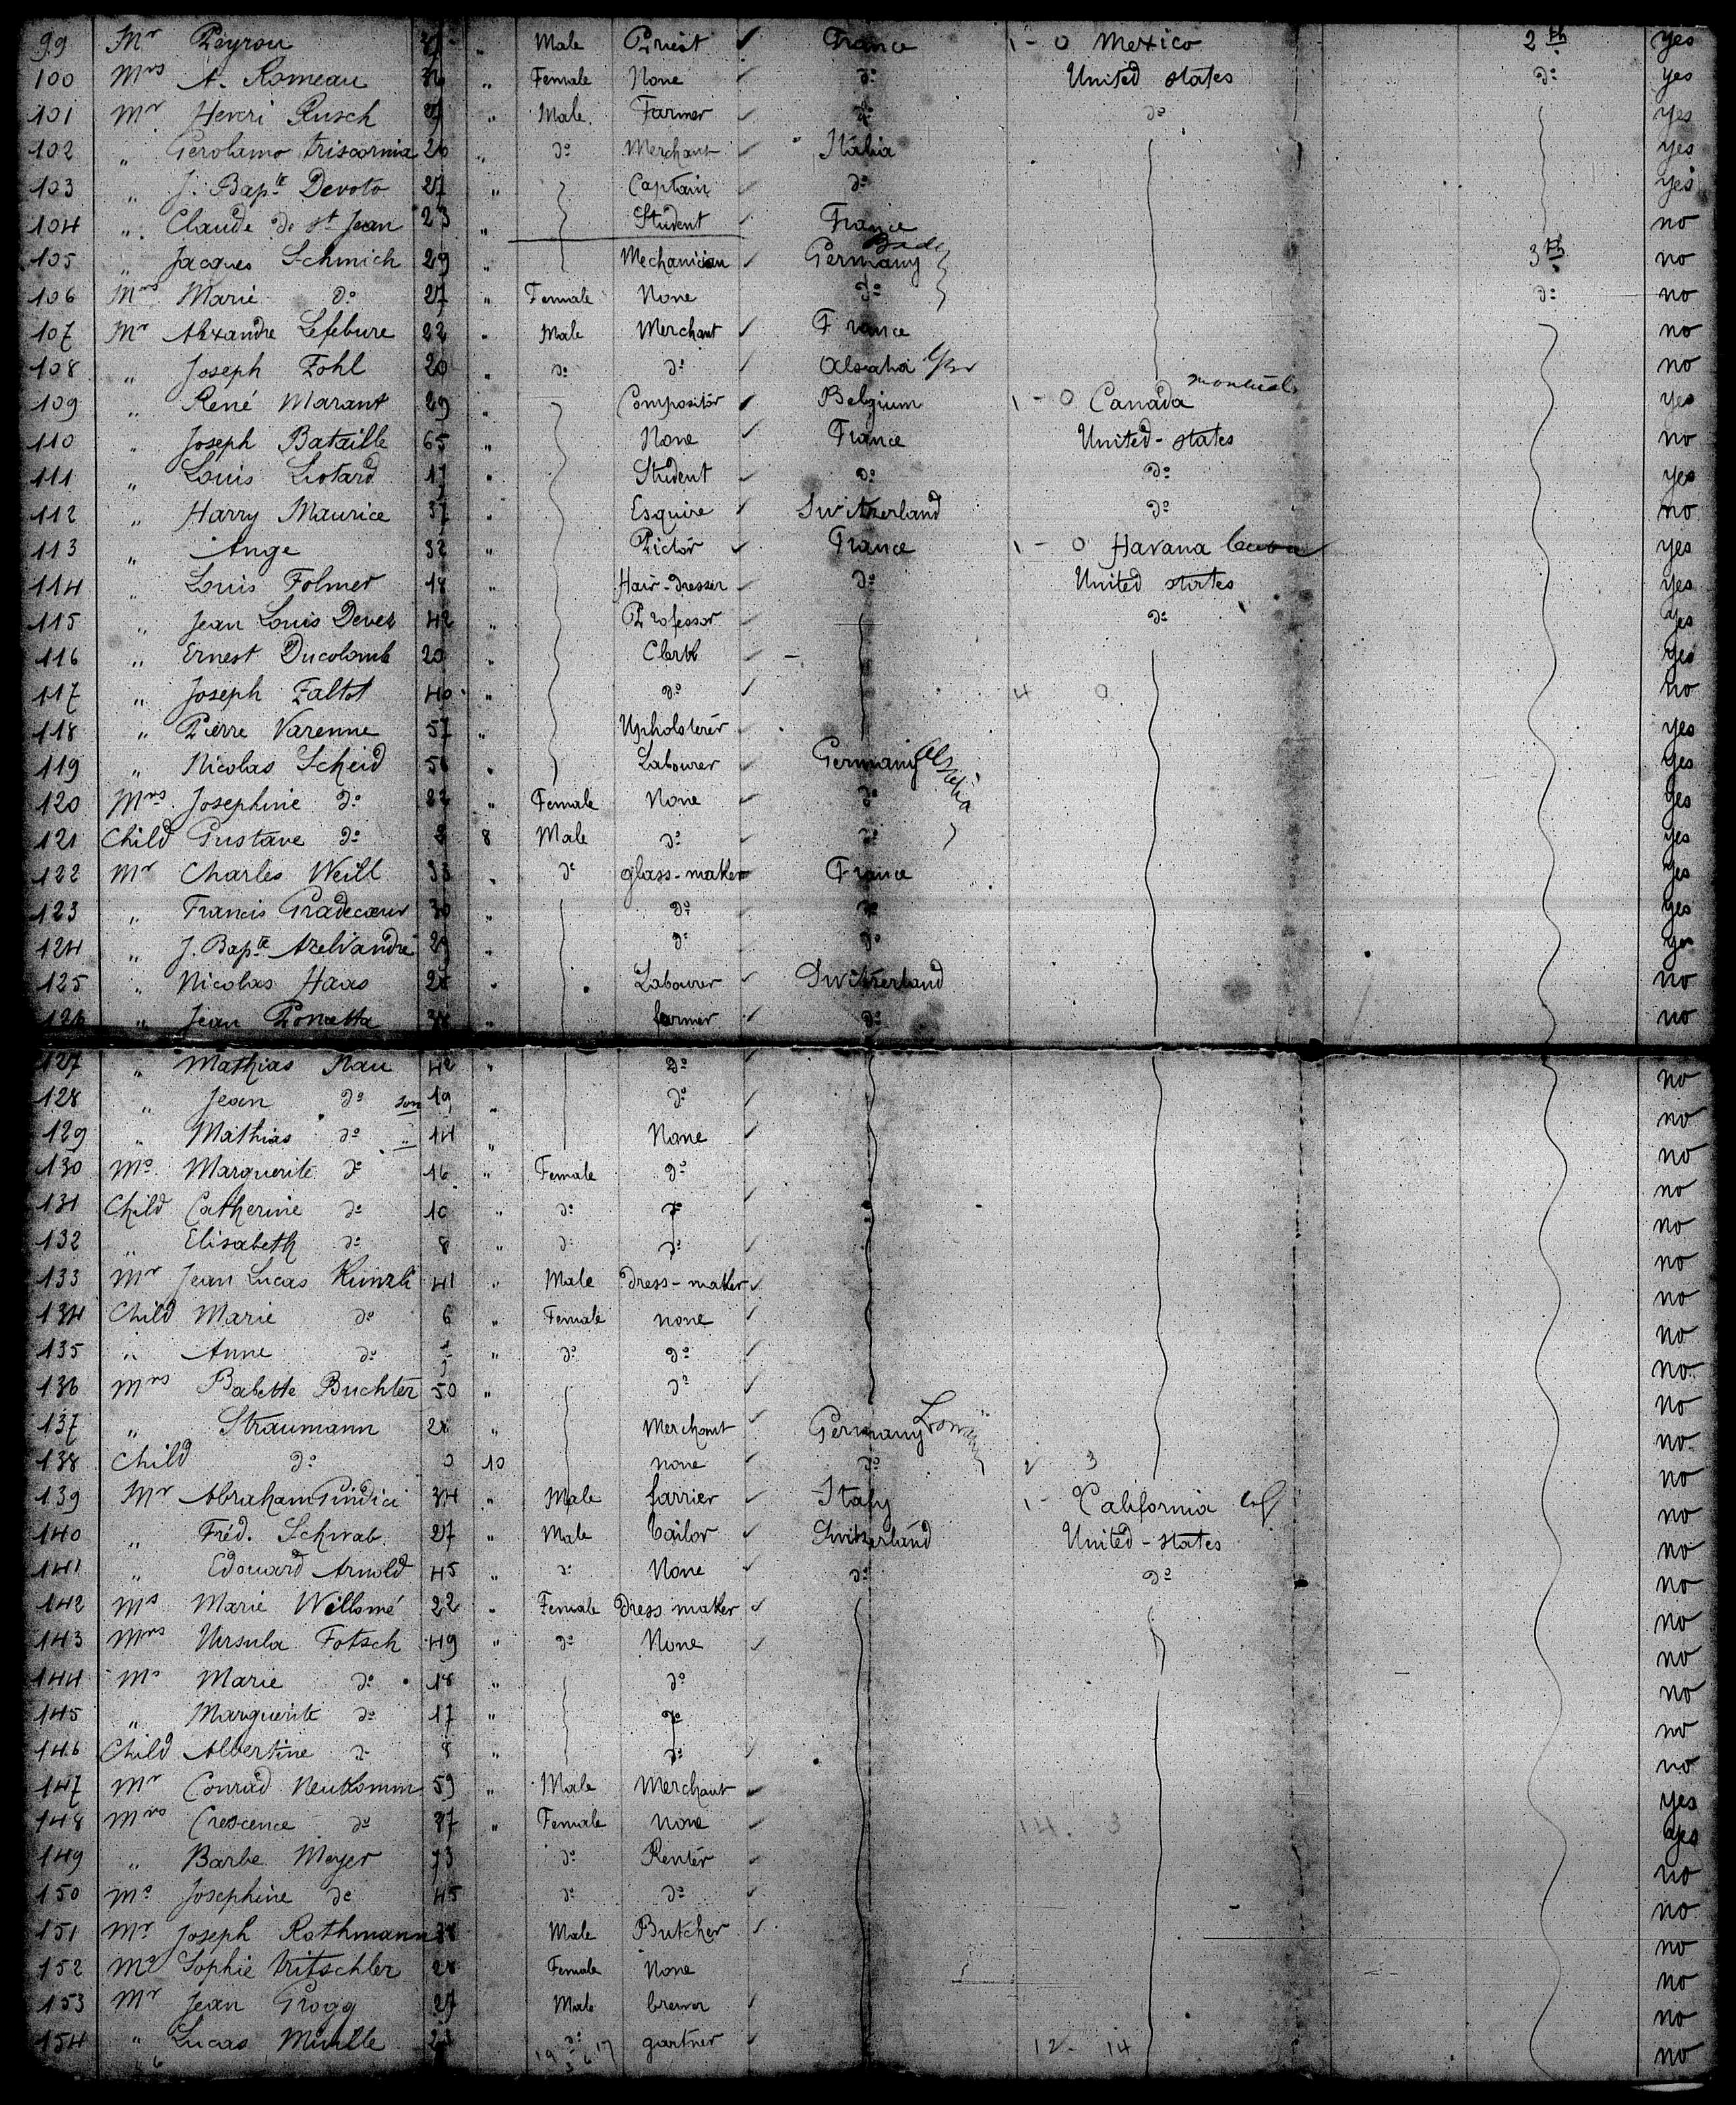 99 Mr Peyron „ Male Priest France 1 - 0 Mexico 2th yes
100 Mrs A. Romeau „ Female None do United states do yes
101 Mr Henri Rusch „ Male Farmer do do yes
102 „ Gerolamo Triscornia 26 „ do Merchant Italia yes
103 „ J. Bapte Devoto 27 „ Captain do yes
104 „ Claude de St Jean 23 „ Student France no
105 „ Jacques Schmich 29 „ Mechanician Germany Bade 3th no
106 Mrs Marie do 27 „ Female None do do no
107 Mr Alexandre Lefebure 22 „ Male Merchant France no
108 „ Joseph Zohl 20 „ do do Alsatia no
109 „ René Marant 29 „ Compositor Belgium 1 - 0 Canada yes
110 „ Joseph Bataille 65 „ None France United-states no
111 „ Louis Liotard 17 „ Student do do yes
112 „ Harry Maurice 37 „ Esquire Switzerland do no
113 „ Ange 32 „ Pictor France 1 - 0 Havana Cuba yes
114 „ Louis Folmer 18 „ Hair-dresser do United states yes
115 „ Jean Louis Devez 42 „ Professor do yes
116 „ Ernest Ducolomb 20 „ Clerk yes
117 „ Joseph Zaltot 40 „ do 4 0 no
118 „ Pierre Varenne 57 „ Upholsterer yes
119 „ Nicolas Scheid „ Labourer Germany Alsatia yes
120 Mrs Josephine do „ Female None do yes
121 Child Gustave do 8 Male do do yes
122 Mr Charles Weill 33 „ do glass-maker France yes
123 „ Francis Gradecoeur 30 „ do do yes
124 „ J. Bapte Azelvandre 29 „ do do yes
125 „ Nicolas Haas „ Labourer Switzerland no
126 „ Jean Ponetta „ farmer do no
127 „ Mathias Nau 42 „ do no
128 „ Jean do son 19 „ do no
129 „ Mathias do „ 14 „ None no
130 Ms Marguerite do 16 „ Female do no
131 Child Catherine do 10 „ do do no
132 „ Elisabeth do 8 „ do do no
133 Mr Jean Lucas Kunzli 41 „ Male Dress-maker no
134 Child Marie do 6 „ Female none no
135 „ Anne do „ do do no
136 Mrs Babette Buchter 50 „ do no
137 „ Straumann „ Merchant Germany no
138 Child do 0 10 none do 2 3 no
139 Mr Abraham Giudici 34 „ Male farrier Italy 1 - 0 California Cal no
140 „ Fréd. Schwab 27 „ Male tailor Switzerland United-states no
141 „ Edouard Arnold 45 „ do None do do no
142 Ms Marie Willomé 22 „ Female Dress maker no
143 Mrs Ursula Fotsch 49 „ do None no
144 Ms Marie do 18 „ do no
145 „ Marguerite do 17 „ do no
146 Child Albertine do 8 „ do no
147 Mr Conrad Neukomm 59 „ Male Merchant yes
148 Mrs Crescence do 37 „ Female none 14. 3 yes
149 „ Barbe Meyer 73 do Renter no
150 Ms Josephine do 45 do do no
151 Mr Joseph Rothmann Male Butcher no
152 Ms Sophie Tritschler Female None no
153 Mr Jean Grogg 27 Male brewer no
154 „ Lucas Minlle do gartner 12 14 no